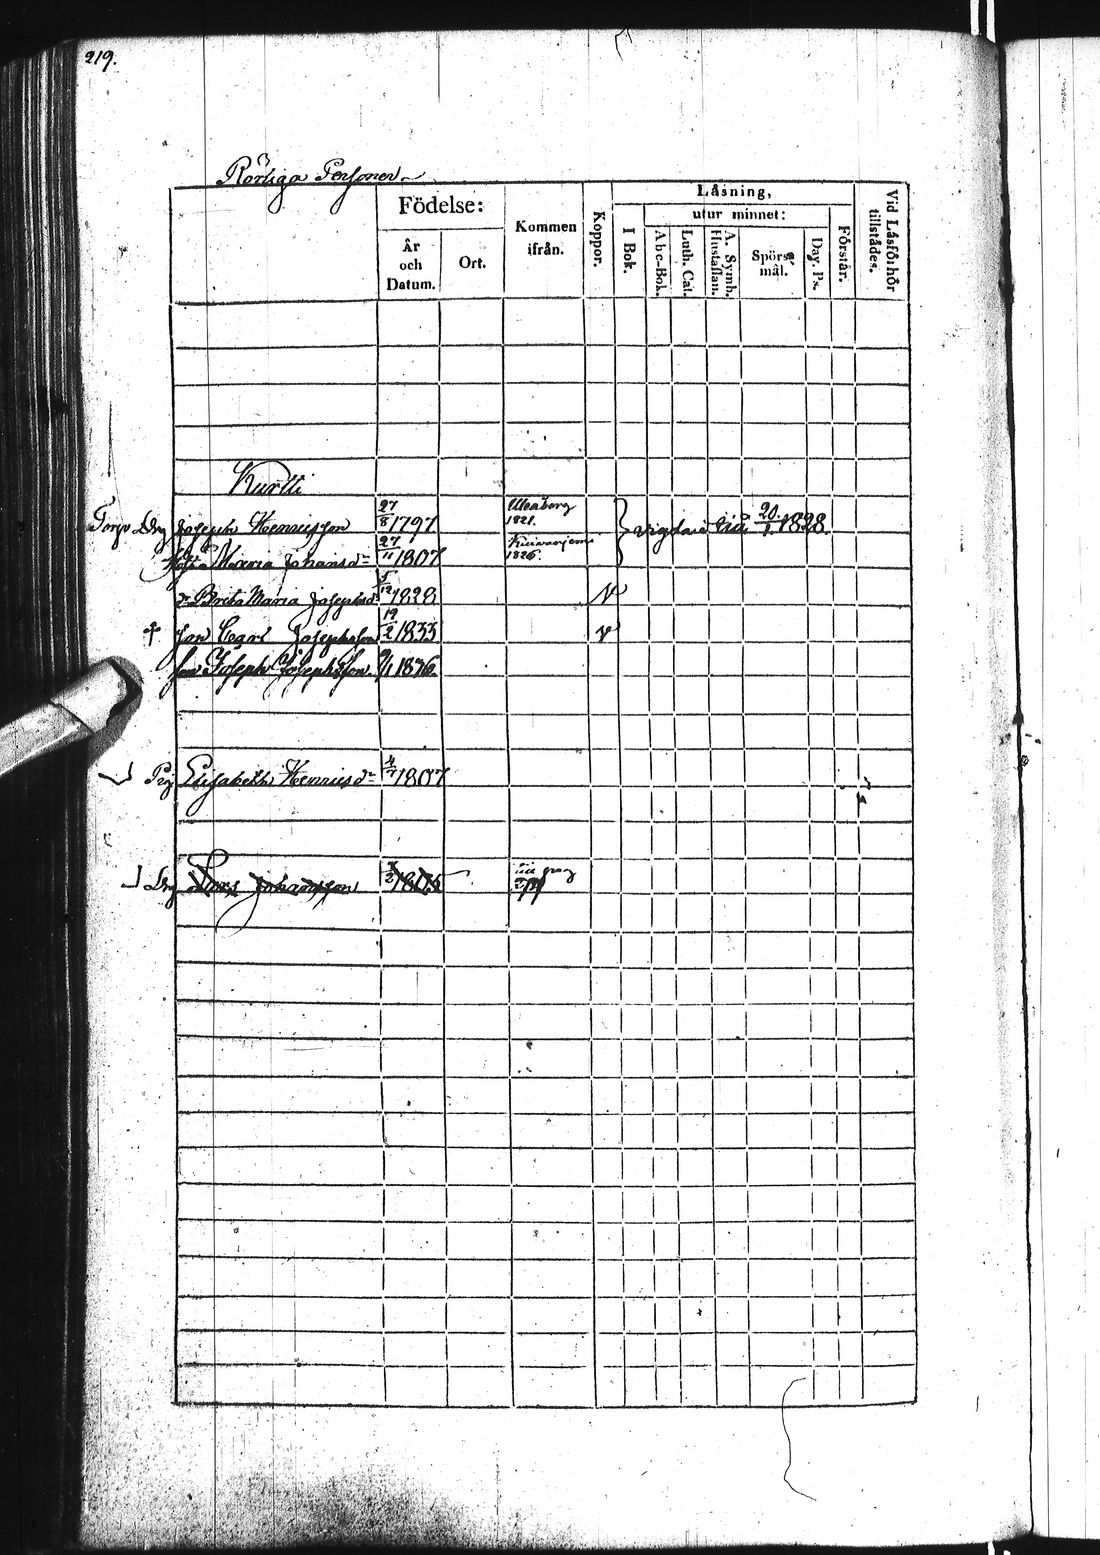 219.
Rörliga Personer
Födelse:
År och Datum.
Ort.
Kommen ifrån.
Koppor.
Läsning,
I Bok.
utur minnet:
Abc-Bok.
Luth. Cat.
A. Symb. Hustaflan.
Spörs mål.
Dav. Ps.
Förstår.
Vid Läsförhör tillstädes.
Kurtti
Torp. Drg Joseph Henricsson 27/8 1797 Uleåborg 1821.
Maria Johansdr 27/11 1807 1826. 20/1 1828
dr Brita Maria Josephsd 5/12 1828 v
† son Carl Josephsson 19/2 1833 v
son Joseph Josephsson. 9/11 1836.
Pig Elisabeth Henricsdr 4/7 1807
Drg Lars Johansson